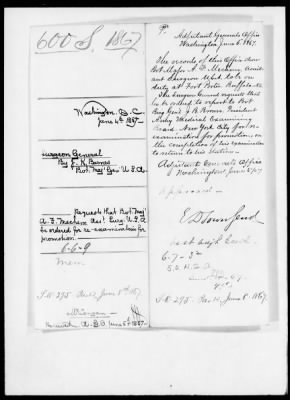 600 S. 1867
Washington D.C.
June 4th 1867.
Surgeon General
By J. K. Barnes
Bvt. Maj. Gen. U.S.A.
Requests that Bvt. Maj.
Asst. Surg. U.S.A.
be ordered for re-examination for
promotion.
6-6-9
Mem
June 5th 1867.
Adjutant General's Office
Washington June 5, 1867.
The records of this Office show
Bvt. Major A. F.
Surgeon U.S.A. to be on
duty at Fort Porter, Buffalo
The Surgeon General requests that
he be ordered to report to Bvt.
Brig. Genl. J. B. Brown, President
Army Medical Examining
Board New York City for
examination for promotion, on
the completion of his examination
to return to his station.
Adjutant General's Office
Washington June 5/67
Approved
E D Townsend
Asst Adjt Genl.
June 5, 1867.